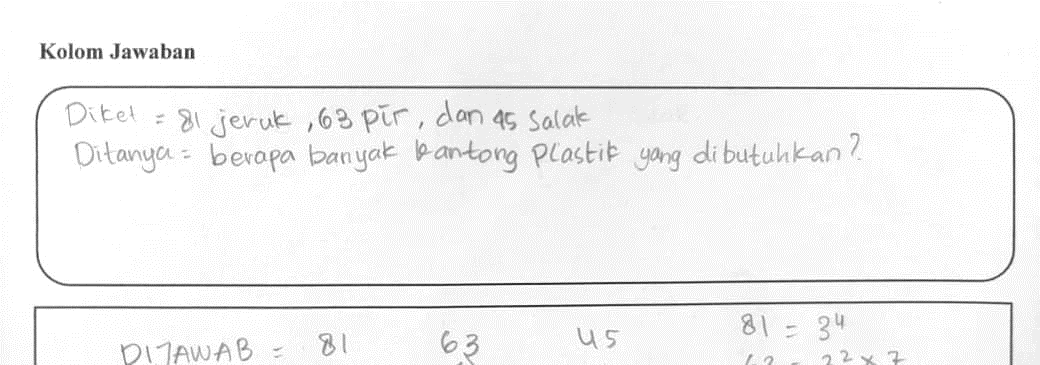 Kolom Jawaban
Diket = 81 jeruk, 63 pir, dan 45 salak
Ditanya = berapa banyak kantong plastik yang dibutuhkan?
DIJAWAB = 81 63 45 81 = 3⁴
63 = 3² × 7